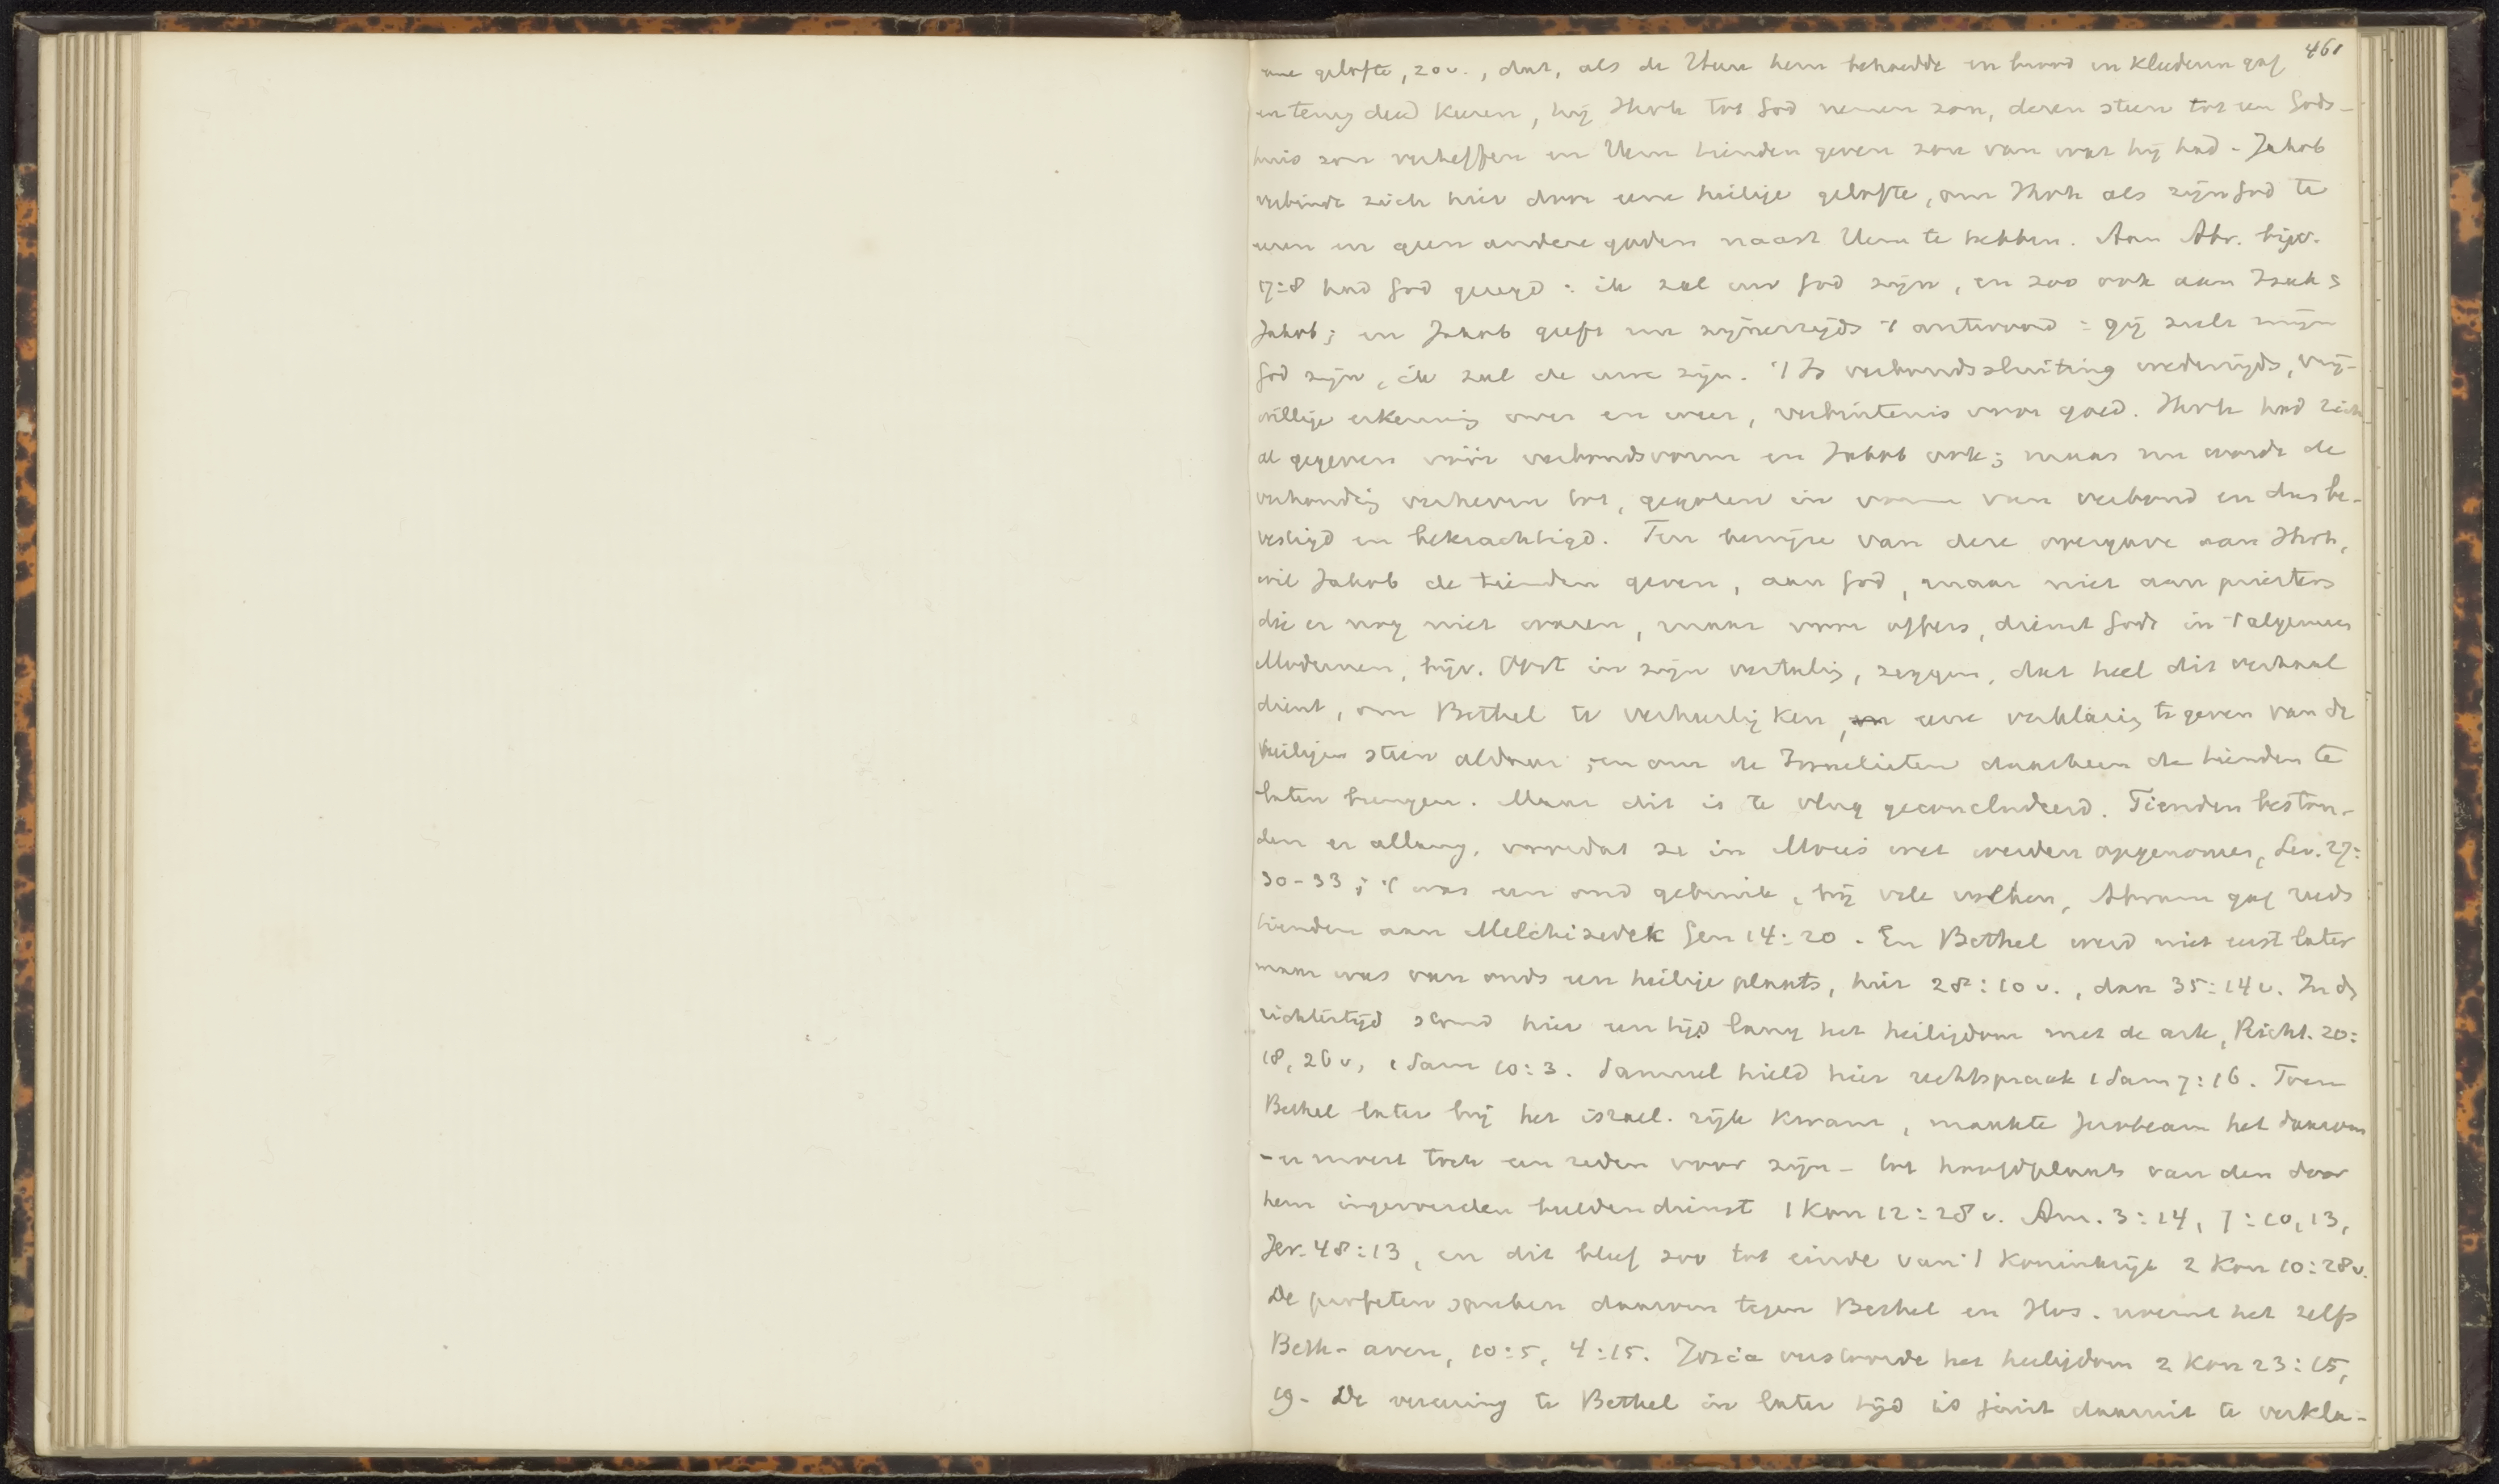 461
eene gelofte, 20v., dat, als de Heere hem behoedde en brood en kleederen gaf
en terug deed keeren, hij Jhvh tot God nemen zou, dezen steen tot een Gods-
huis zou verheffen en Hem tienden geven zou van wat hij had - Jakob
verbindt zich hier door eene heilige gelofte, om Jhvh als zijn God te
eeren en geen andere goden naast Hem te hebben. Aan Abr. bijv.
17:8 had God gezegd: ik zal uw God zijn, en zoo ook aan Izak &
Jakob; en Jakob geeft nu zijnerzijds 't antwoord: gij zult mijn
God zijn, ik zal de uwe zijn. 't Is verbondssluiting wederzijds, vrij-
willige erkenning over en weer, verbintenis voor goed. Jhvh had zich
al gegeven vóór verbondsvorm en Jakob ook; maar nu wordt de
verhouding verheven tot, gegoten in vorm van verbond en dus be-
vestigd en bekrachtigd. Ten bewijze van deze overgave aan Jhvh,
wil Jakob de tienden geven, aan God, maar niet aan priesters
die er nog niet waren, maar voor offers, dienst Gods in 't algemeen
Modernen, bijv. Oort in zijn vertaling, zeggen, dat heel dit verhaal
dient, om Bethel te verheerlijken, eene verklaring te geven van de
heiligen steen aldaar, en om de Israelieten daarheen de tienden te
laten brengen. Maar dit is te vlug geconcludeerd. Tienden beston-
den er allang, voordat ze in Mozes wet werden opgenomen, Lev. 27:
30-33; 't was een oud gebruik, bij vele volken, Abram gaf reeds
tienden aan Melchizedek Gen 14:20. En Bethel werd niet eerst later
maar was van ouds een heilige plaats, hier 28:10v., dan 35:14v. In de
richtertijd stond hier een tijd lang het heiligdom met de ark, Richt. 20:
18, 26v, 1 Sam 10:3. Samuel hield hier rechtspraak 1 Sam 7:16. Toen
Bethel later bij het israel. rijk kwam, maakte Jerobeam het daarom
- er moest toch een reden voor zijn - tot hoofdplaats van den door
hem ingevoerden beeldendienst 1 Kon 12:28v. Am. 3:14, 7:10,13,
Jer. 48:13, en dit bleef zoo tot einde van 't koninkrijk 2 Kon 10:28v.
De profeten spreken daarom tegen Bethel en Hos. noemt het zelfs
Beth-aven, 10:5, 4:15. Josia verstoorde het heiligdom 2 Kon 23:15,
19. De vereering te Bethel in later tijd is juist daaruit te verkla-